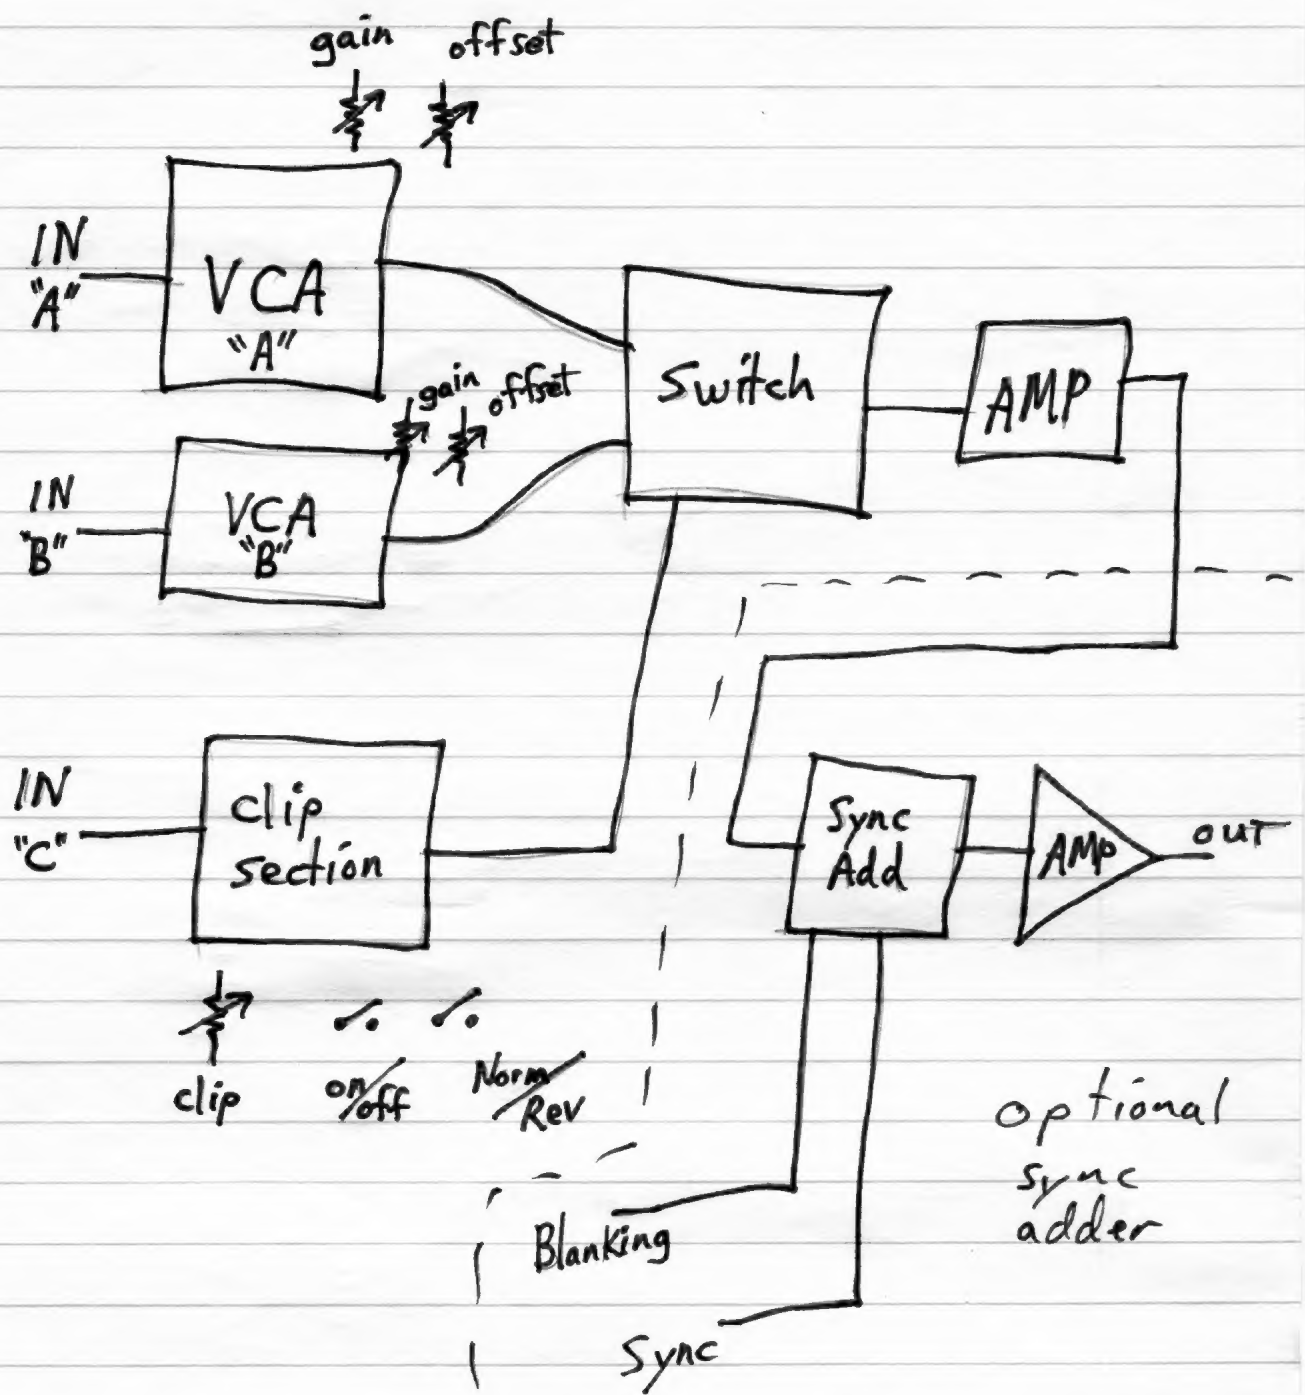 gain offset
IN
"A"
VCA
"A"
gain offset
Switch
AMP
IN
"B"
VCA
"B"
IN
"C"
clip
section
Sync
Add
AMP
OUT
clip
on/off
Norm/Rev
optional
sync
adder
Blanking
Sync